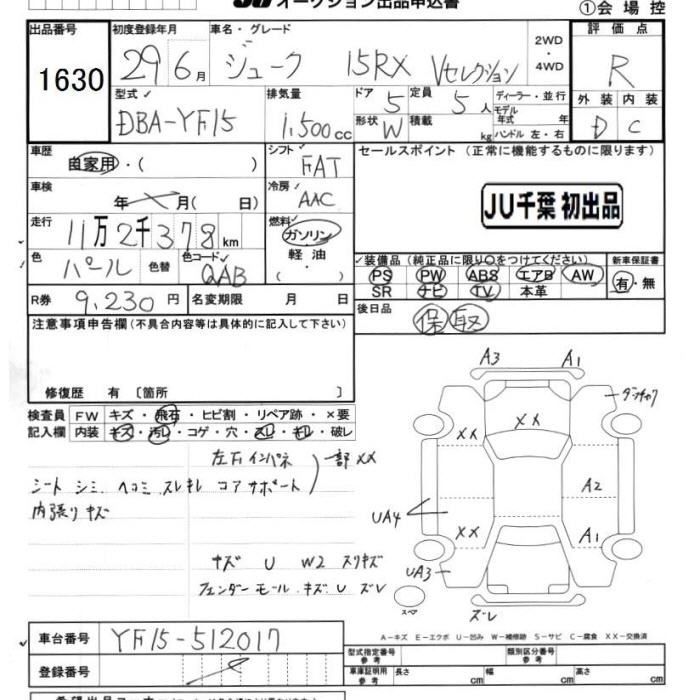 オークション出品申込書
①会場控
出品番号 初度登録年月 車名・グレード 2WD・4WD 評価点
1630 29 6月 ジューク 15RX Vセレクション R
型式 排気量 ドア 定員 ディーラー・並行 外装 内装
DBA-YF15 1,500cc 5 5人 モデル年式 年 D C
形状 W 積載 kg ハンドル 左・右
車歴 シフト セールスポイント (正常に機能するものに限ります)
自家用・( ) FAT
車検 冷房
年 月( 日) AAC JU千葉 初出品
走行 燃料
11万2千378km ガソリン
軽油
色 パール 色替 色コード QAB ・( )
装備品(純正品に限り○をつけてください) 新車保証書
PS PW ABS エアB AW 有・無
SR ナビ TV 本革
R券 9,230円 名変期限 月 日 後日品 保 取
注意事項申告欄(不具合内容等は具体的に記入して下さい)
修復歴 有 〔箇所 〕
検査員 FW キズ・飛石・ヒビ割・リペア跡・×要
記入欄 内装 キズ・汚レ・コゲ・穴・スレ・キレ・破レ
左右インパネ 一部XX
シート シミ、ヘコミ スレキレ コアサポート
内張りキズ
キズ U W2 スリキズ
フェンダーモール キズ U ズレ
A3 A1
XX XX
A2
UA4
XX A1
UA3
スペア ズレ
A-キズ E-エクボ U-凹み W-補修跡 S-サビ C-腐食 XX-交換済
車台番号 YF15-512017
登録番号
型式指定番号 参考 類別区分番号 参考
車庫証明用 参考 長さ cm 幅 cm 高さ cm